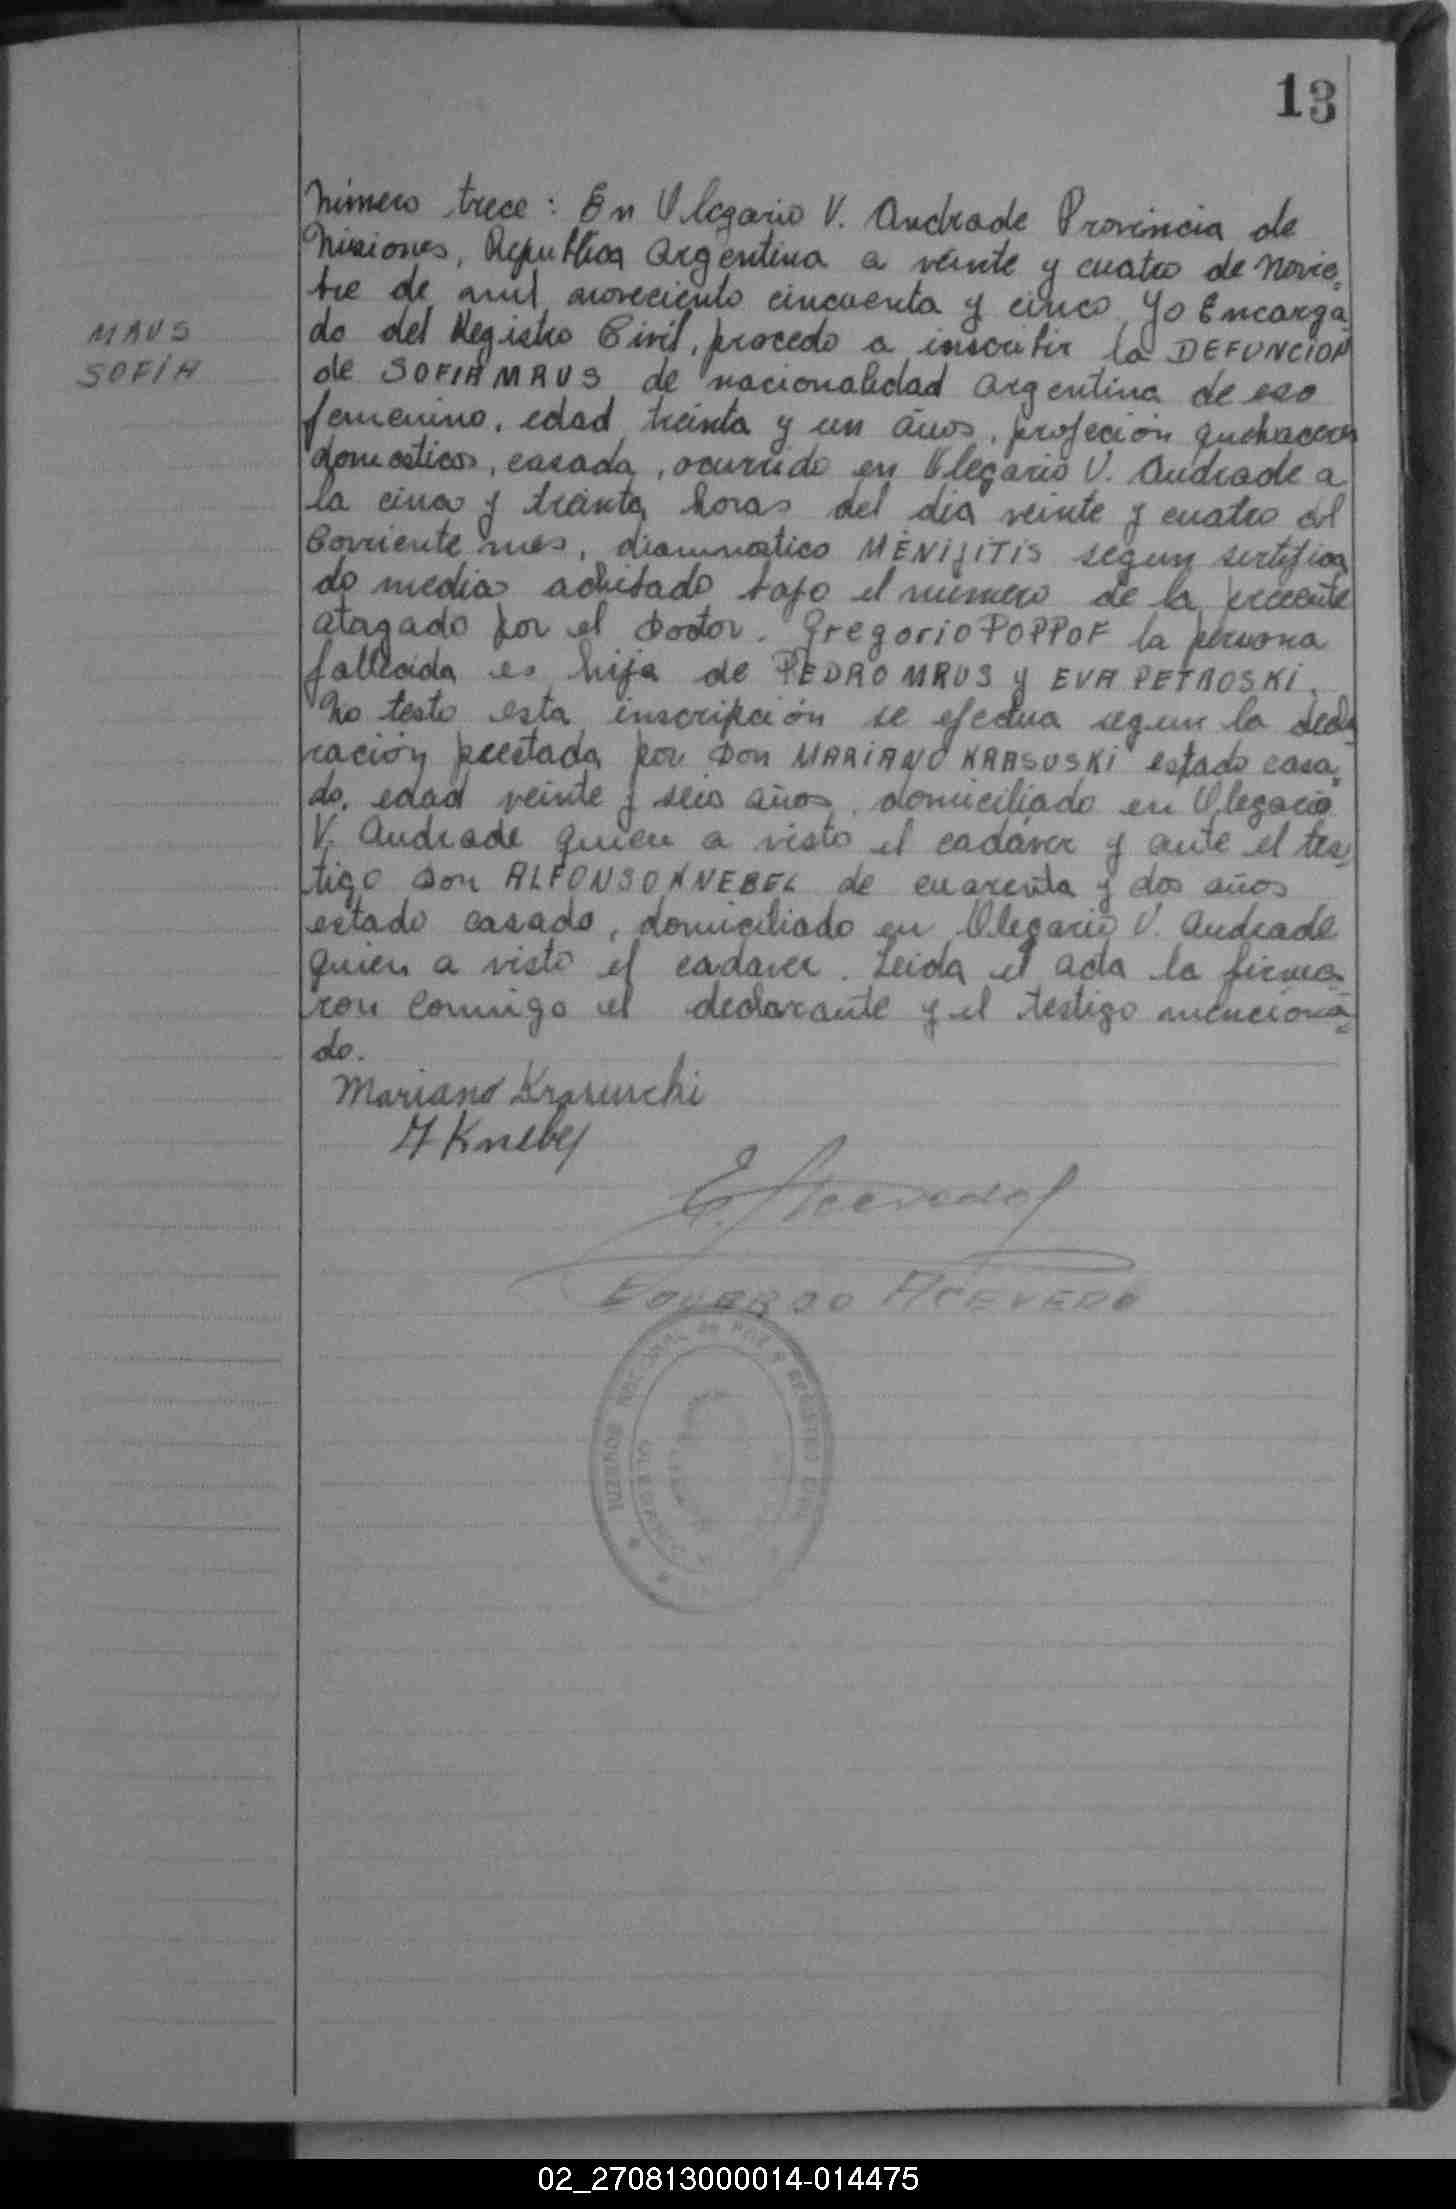 13
MAUS
SOFIA
Número trece: En Olegario V. Andrade Provincia de
Misiones, Republica Argentina a veinte y cuatro de Novie=
bre de mil novecciento cincuenta y cinco, yo Encarga=
do del Registro Civil, procedo a inscribir la DEFUNCION
de SOFIA MAUS de nacionalidad argentina de sexo
femenino, edad treinta y un años, profeción quehaceres
domesticos, casada, ocurrido en Olegario V. Andrade a
la cinco y treinta horas del dia veinte y cuatro del
Corriente mes, MENIJITIS segun sertifica
do medico bajo el número de la precente
atagado por el Doctor. Gregorio POPPOF la persona
fallecida es hija de PEDRO MAUS y EVA PETROSKI.
No testo esta inscripción se efectua segun la decla=
ración prestada por Don MARIANO KRASUSKI estado casa=
do, edad veinte y seis años, domiciliado en Olegario
V. Andrade quien a visto el cadáver y ante el tes=
tigo Don ALFONSO KNEBEL de cuarenta y dos años
estado casado, domiciliado en Olegario V. Andrade
quien a visto el cadaver. Leida el acta la firma=
ron Conmigo el declarante y el testigo menciona=
do.
Mariano Krasuschi
A Knebel
E. Acevedo
EDUARDO ACEVEDO
JUZGADO NACIONAL de PAZ y REGISTRO CIVIL
02_270813000014-014475